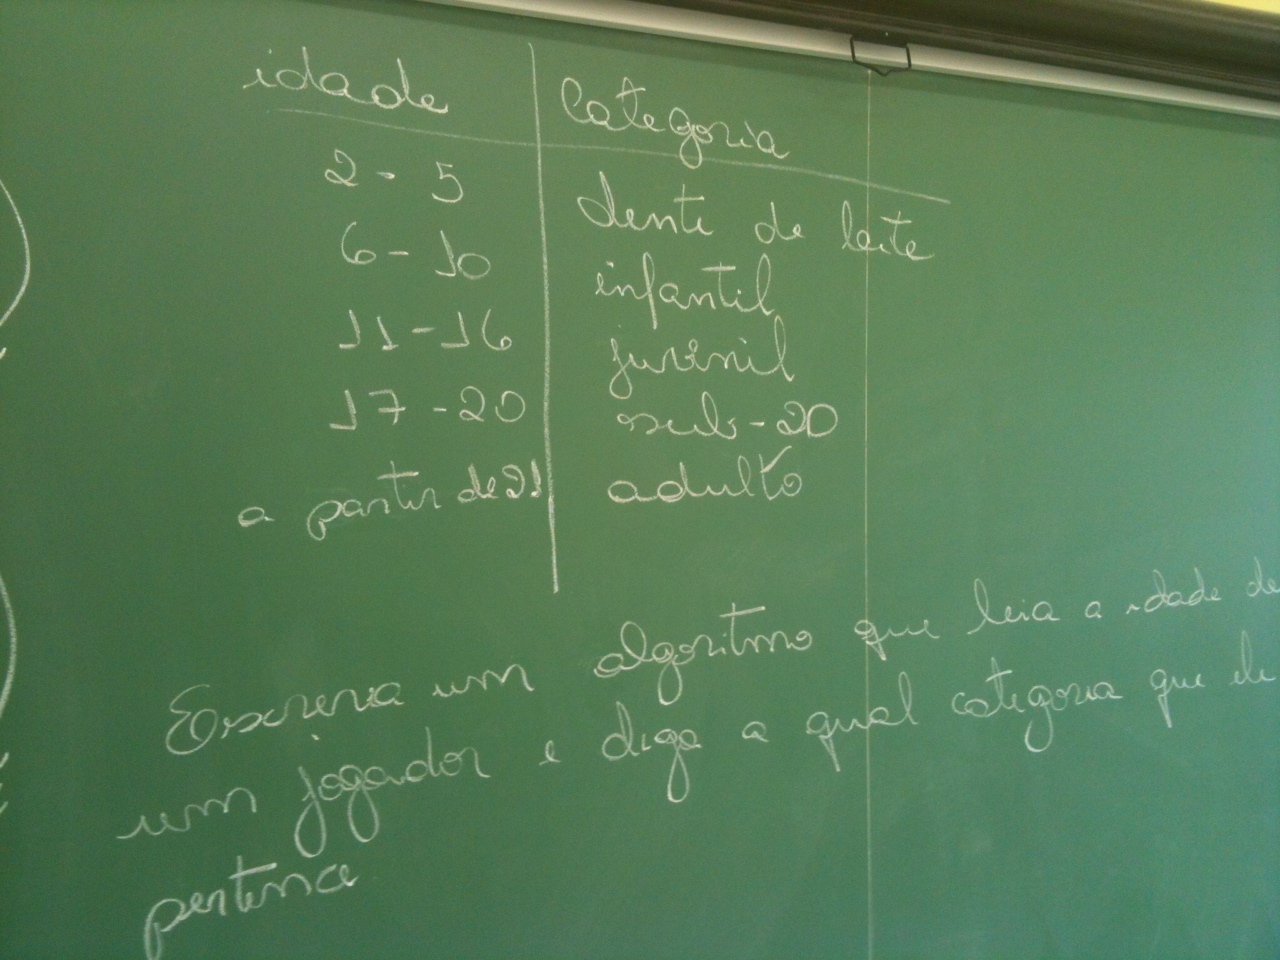 idade categoria
2 - 5 dente de leite
6 - 10 infantil
11 - 16 juvenil
17 - 20 sub - 20
a partir de 21 adulto
Escreva um algoritmo que leia a idade de
um jogador e diga a qual categoria que ele
pertence